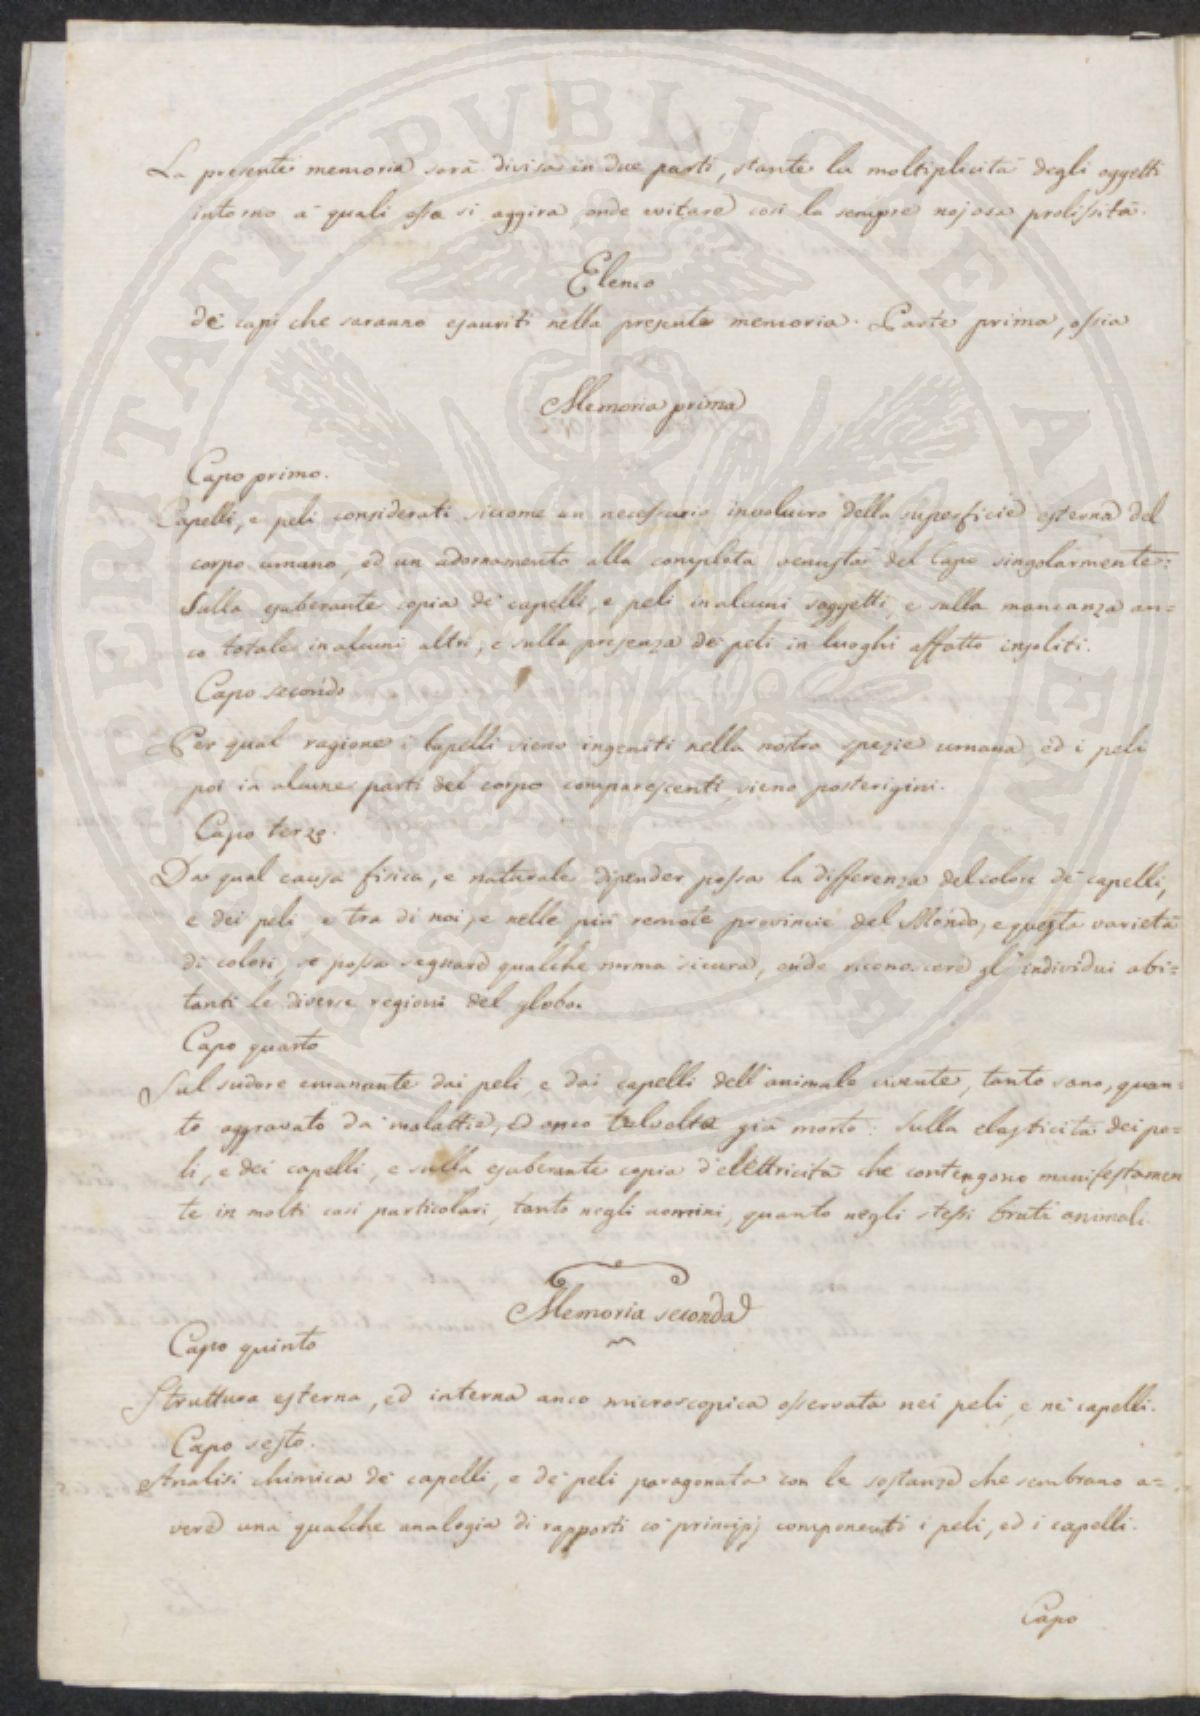 La presente memoria sarà divisa in due parti, stante la moltiplicità degli oggetti
intorno a' quali essa si aggira, onde evitare così la sempre nojosa prolissità.
Elenco
de' capi che saranno esauriti nella presente memoria. Parte prima, ossia
Memoria prima
Capo primo.
Capelli, e peli considerati siccome un necessario involucro della superficie esterna del
corpo umano, ed un adornamento alla completa venustà del Capo singolarmente:
Sulla esuberante copia de' capelli, e peli in alcuni soggetti, e sulla mancanza an=
co totale in alcuni altri, e sulla presenza de' peli in luoghi affatto insoliti.
Capo secondo
Per qual ragione i Capelli sieno ingeniti nella nostra spezie umana, ed i peli
poi in alcune parti del corpo comparescenti, sieno posterigini.
Capo terzo.
Da qual causa fisica, e naturale dipender possa la differenza del colore de' capelli,
e dei peli, e tra di noi, e nelle più remote provincie del Mondo, e questa varietà
di colori, se possa segnare qualche norma sicura, onde riconoscere gl'individui abi=
tanti le diverse regioni del globo.
Capo quarto
Sul sudore emanante dai peli, e dai capelli dell'animale vivente, tanto sano, quan=
to aggravato da malattie, ed anco talvolta già morto: Sulla elasticità dei pe=
li, e dei capelli, e sulla esuberante copia d'elettricità che contengono manifestamen
te in molti casi particolari, tanto negli uomini, quanto negli stessi bruti animali.
Memoria seconda
Capo quinto
Struttura esterna, ed interna anco microscopica osservata nei peli, e ne' capelli.
Capo sesto.
Analisi chimica de' capelli, e de' peli paragonata con le sostanze che sembrano a=
vere una qualche analogia di rapporti co' principj componenti i peli, ed i capelli.
Capo
PROSPERITATI PUBLICAE AUGENDAE